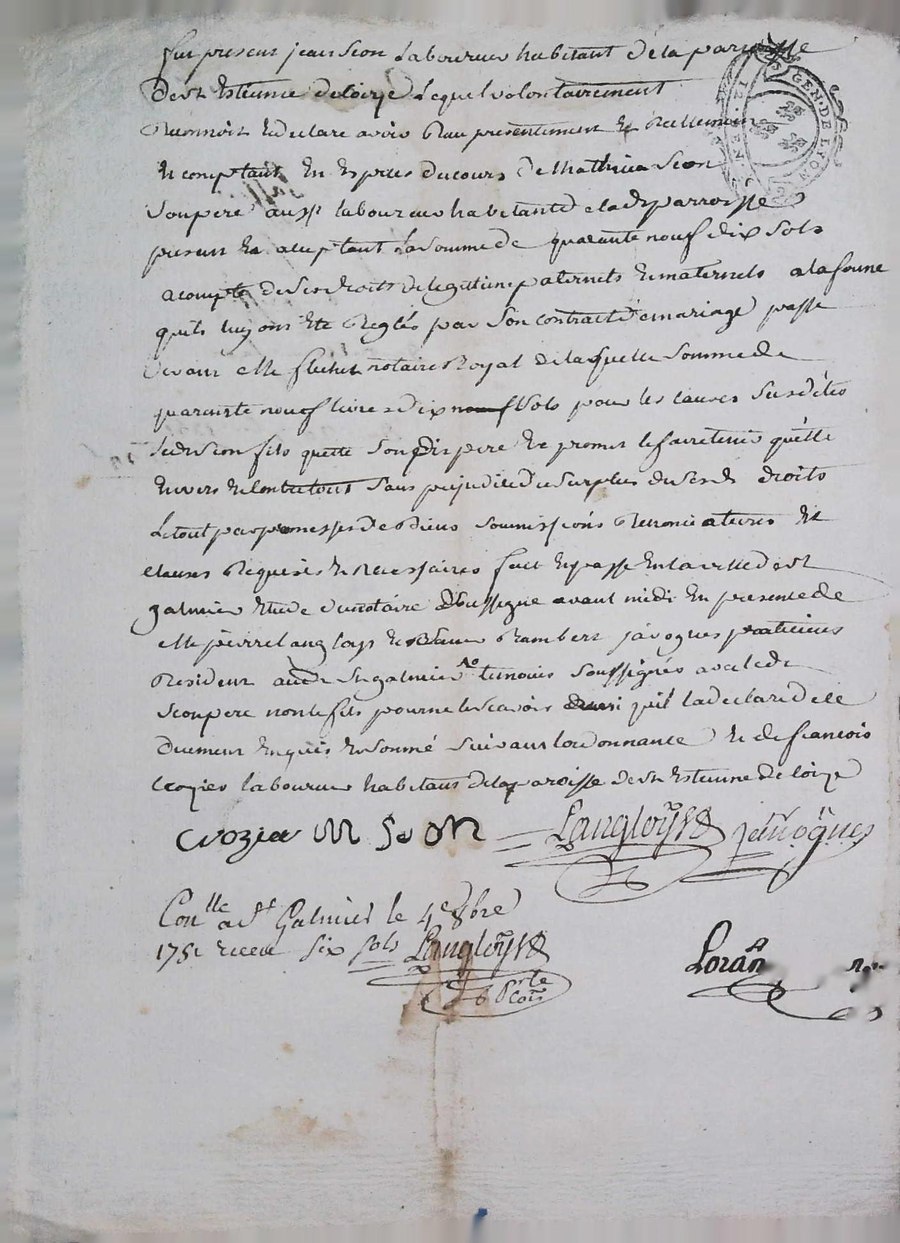 fut present jean Sion Laboureur habitant de la parroisse
de st Estienne de loize Lequel volontairement
Reconnoit Et declare avoir Reçu presentement Et Reellement
En comptant En Especes du cours de Mathieu Sion
Son pere aussy laboureur habitant de lad parroisse
present Et aceptant La somme de quarante nouf dix Sols
acompte de Ses droits de legitime paternels Et maternels a la forme
quils luy ont Eté Reglés par Son contract de mariage passé
devant Me notaire Royal de laquelle Somme de
quarante nouf livres dix Sols pour les causes Susdites
led Sion fils quitte Sond pere Et promet le faire tenir quitte
Envers Et contre tous Sans prejudice du Surplus de Sesd droits
Le tout par promesses de Biens Soumissions Renonciations Et
clauses Requises Et Necessaires fait Et passé En la ville de st
galmier Etude du notaire Soussigné avant midi En presence de
Me pierre Langloys Et Rambert javogues praticiens
Resident aud St galmier temoins Soussignés avec led
Sion pere non le fils pour ne le Scavoir ainsi quil la declaré de ce
Duement Enquis Et Sommé Suivant lordonnance Et de francois
Crozier laboureur habitant de la paroisse de st Estienne de loize
GEN. DE LYON
crozier M Sion Langloys Javogues
Conlle a St Galmier le 4e 8bre
1751 receu six sols Langloys
Loran